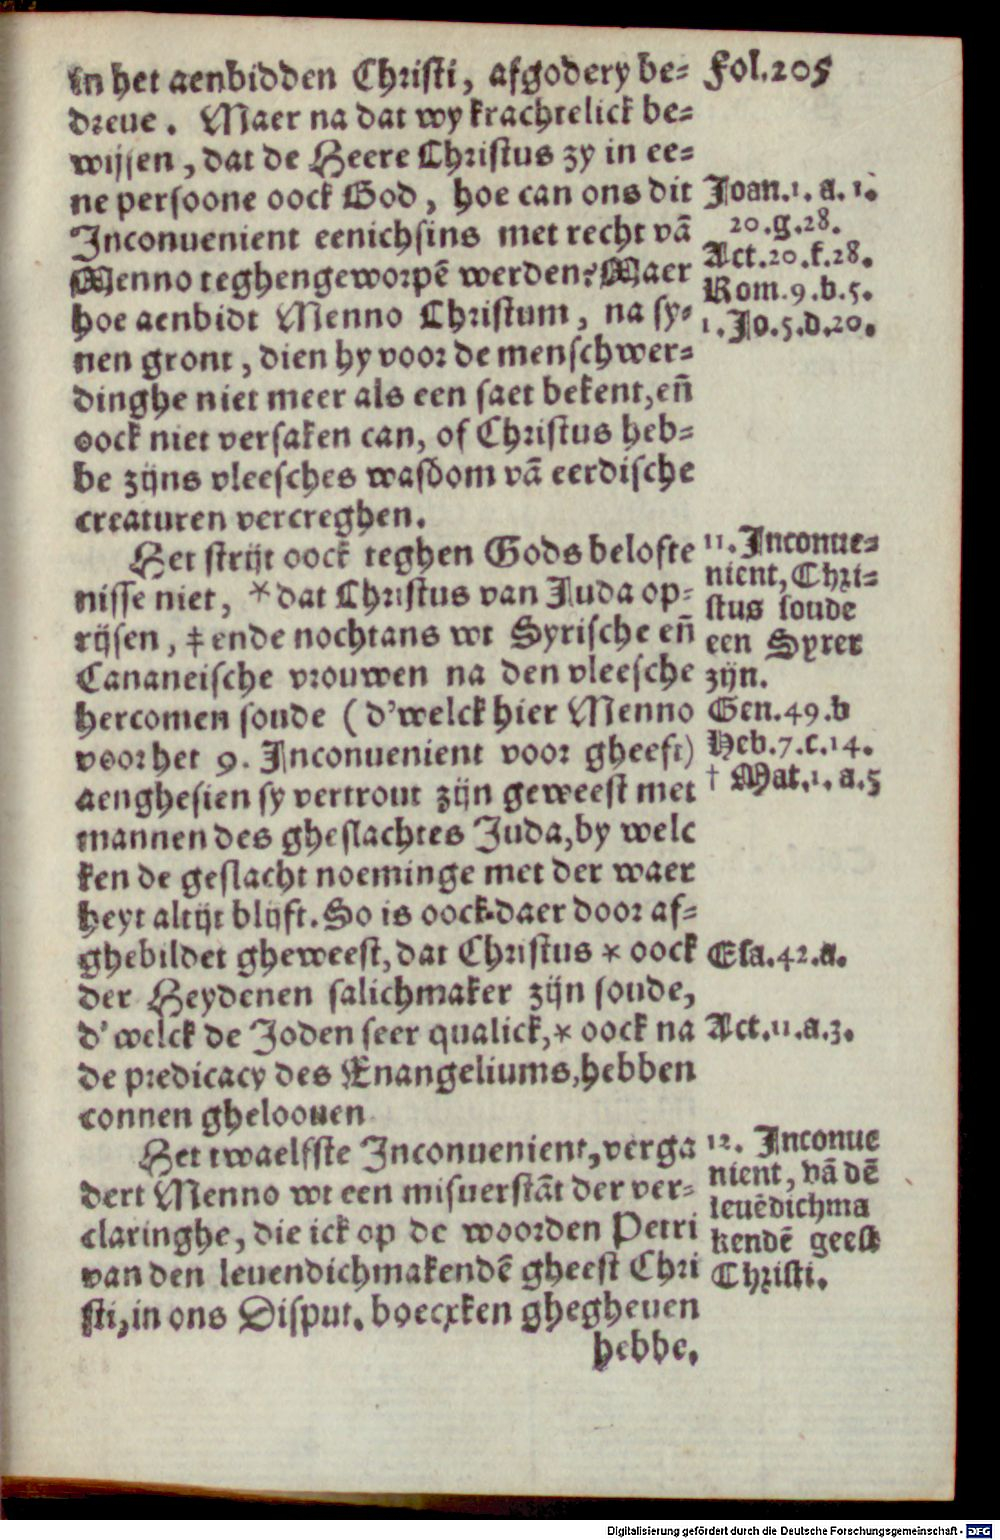 Fol.205
in het aenbidden Christi, afgodery be-
dreue. Maer na dat wy krachtelick be-
wijsen, dat de Heere Christus zy in ee-
ne persoone oock God, hoe can ons dit
Inconuenient eenichsins met recht vā
Menno teghengeworpē werden? Maer
hoe aenbidt Menno Christum, na sy-
nen gront, dien hy voor de menschwer-
dinghe niet meer als een saet bekent, en̄
oock niet versaken can, of Christus heb-
be zijns vleesches wasdom vā eerdische
creaturen vercreghen.
Joan.1.a.1.
20.g.28.
Act.20.f.28.
Rom.9.b.5.
1.Jo.5.d.20.
Het strijt oock teghen Gods belofte
nisse niet, * dat Christus van Juda op-
rijsen, ‡ ende nochtans wt Syrische en̄
Cananeische vrouwen na den vleesche
hercomen soude (d'welck hier Menno
voor het 9. Inconuenient voor gheeft)
aenghesien sy vertrout zijn geweest met
mannen des gheslachtes Juda, by welc
ken de geslacht noeminge met der waer
heyt altijt blijft. So is oock daer door af-
ghebildet gheweest, dat Christus * oock
der Heydenen salichmaker zijn soude,
d'welck de Joden seer qualick, * oock na
de predicacy des Enangeliums, hebben
connen gheloouen
11. Inconue-
nient, Chri-
stus soude
een Syrer
zijn.
Gen.49.b
Heb.7.c.14.
† Mat.1.a.5
Esa.42.a.
Act.11.a.3.
Het twaelfste Inconuenient, verga
dert Menno wt een misuerstāt der ver-
claringhe, die ick op de woorden Petri
van den leuendichmakendē gheest Chri
sti, in ons Disput. boecxken ghegheuen
hebbe.
12. Inconue
nient, vā dē
leuēdichma
kendē geest
Christi.
Digitalisierung gefördert durch die Deutsche Forschungsgemeinschaft - DFG